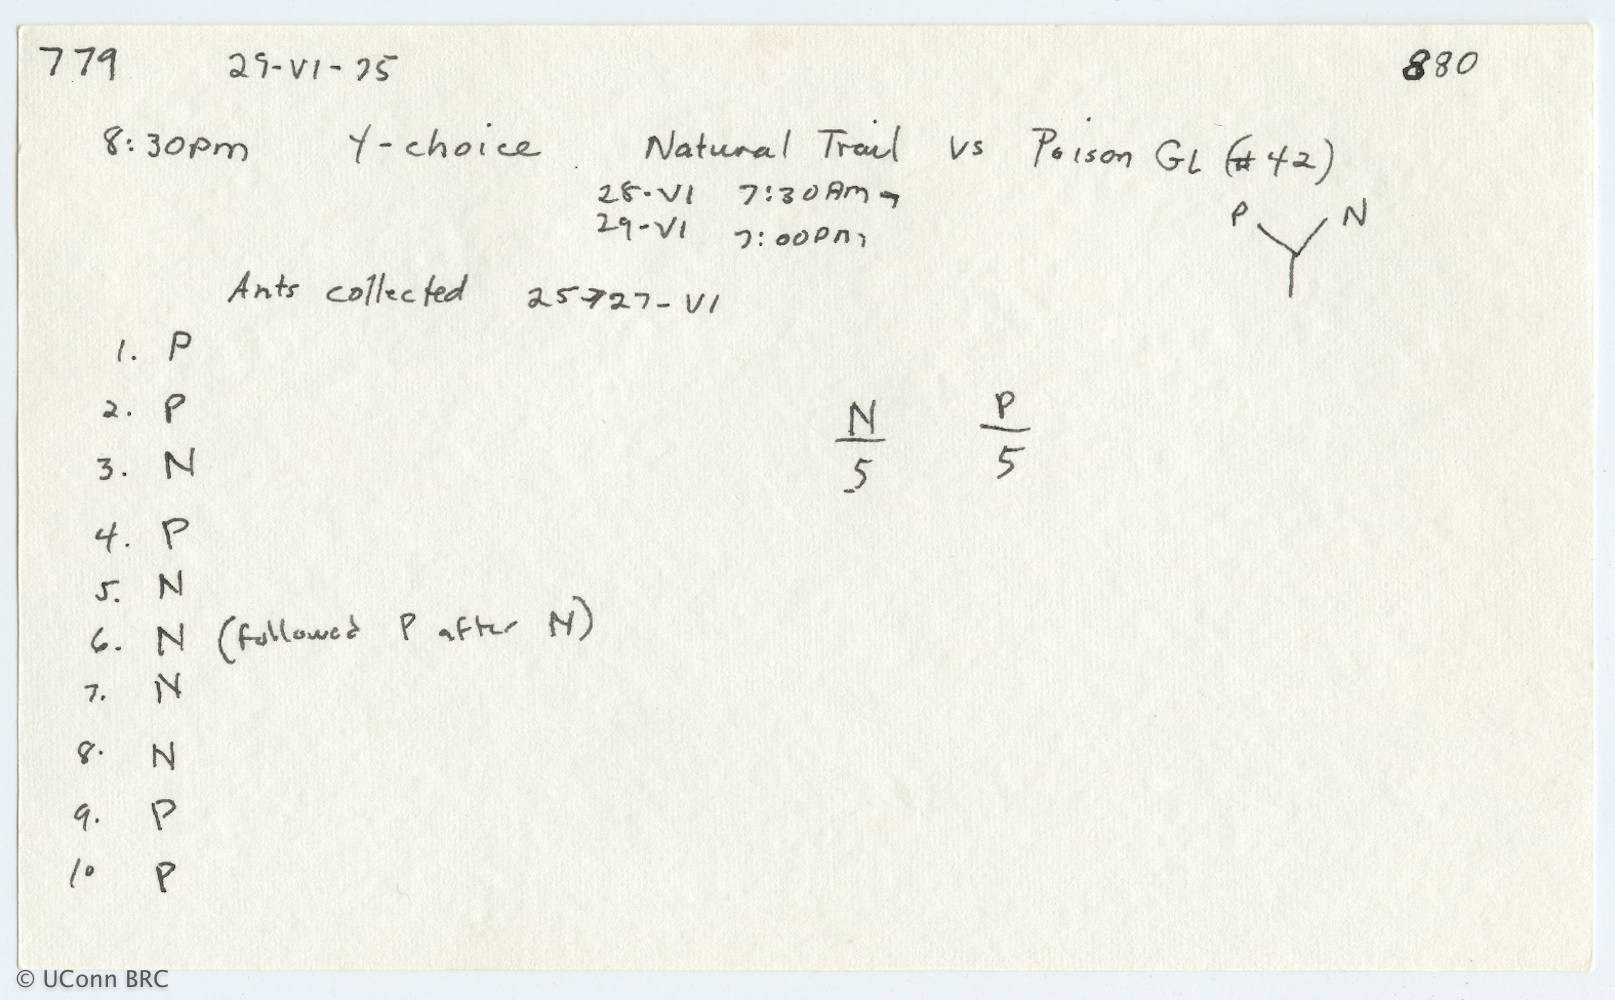 779 29-VI-75 880
8:30pm Y-choice Natural Trail vs Poison GL (#42)
28-VI 7:30Am →
29-VI 7:00pm
P N
Ants collected 25→27-VI
1. P
2. P
3. N
4. P
5. N
6. N (followed P after N)
7. N
8. N
9. P
10 P
N P
5 5
© UConn BRC